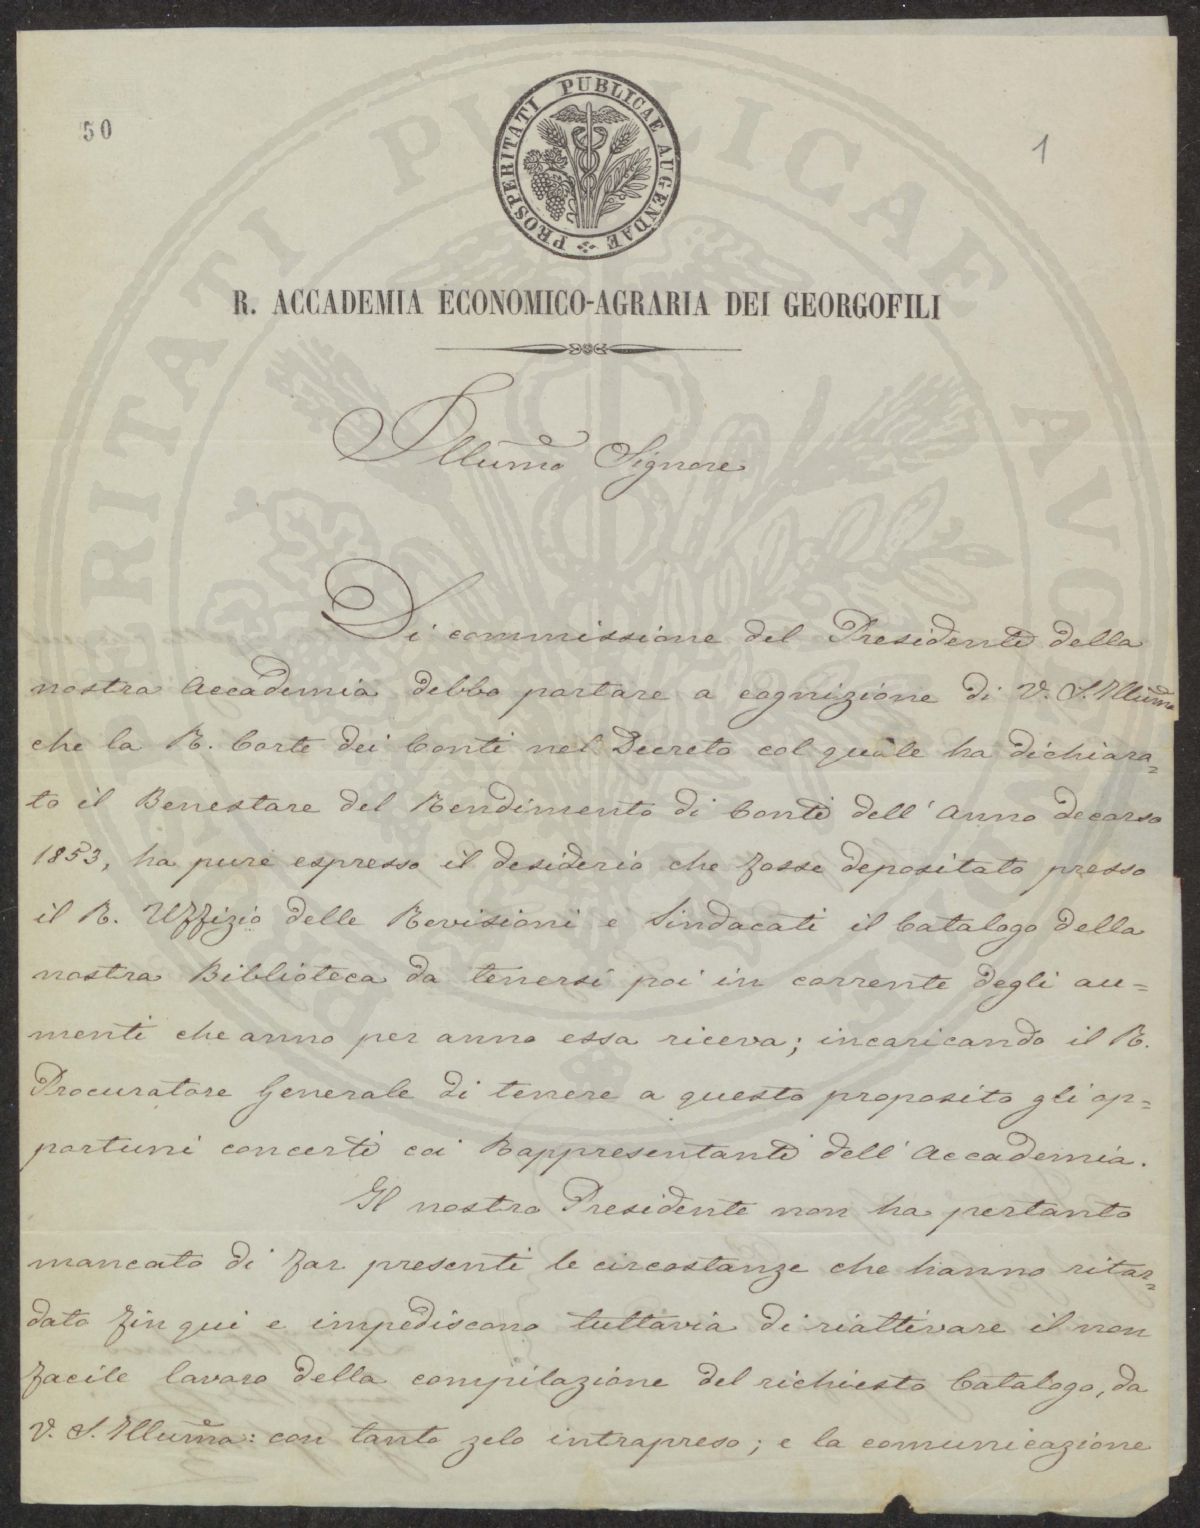 50
1
PROSPERITATI PUBLICAE AUGENDAE
R. ACCADEMIA ECONOMICO-AGRARIA DEI GEORGOFILI
Illumo Signore
Di commissione del Presidente della
nostra Accademia debbo portare a cognizione di V. S. Illuma
che la R. Corte dei Conti nel Decreto col quale ha dichiara=
to il Benestare del Rendimento di Conti dell'Anno decorso
1853, ha pure espresso il desiderio che fosse depositato presso
il R. Uffizio delle Revisioni e Sindacati il Catalogo della
nostra Biblioteca da tenersi poi in corrente degli au=
menti che anno per anno essa riceva; incaricando il R.
Procuratore Generale di tenere a questo proposito gli op=
portuni concerti coi Rappresentanti dell'Accademia.
Il nostro Presidente non ha pertanto
mancato di far presenti le circostanze che hanno ritar=
dato fin qui e impediscono tuttavia di riattivare il non
facile lavoro della compilazione del richiesto Catalogo, da
V. S. Illuma: con tanto zelo intrapreso; e la comunicazione